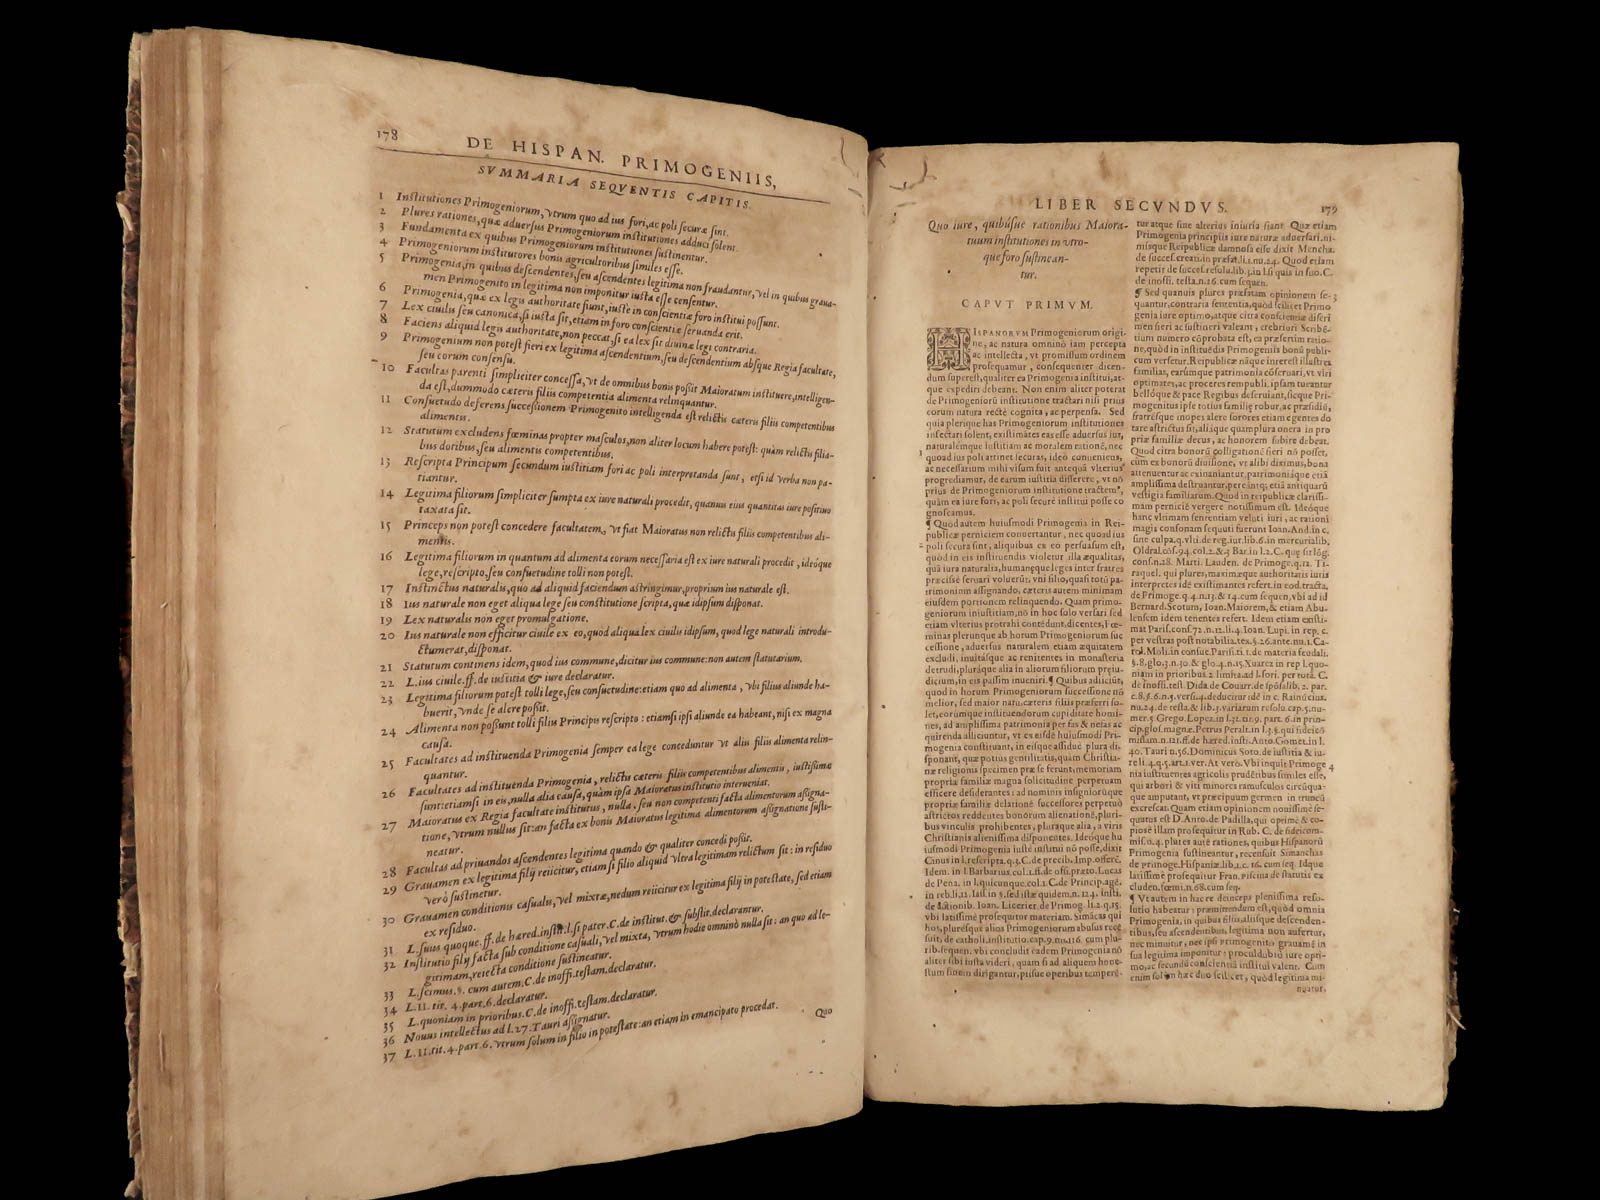 178
DE HISPAN. PRIMOGENIIS,
SVMMARIA SEQVENTIS CAPITIS.
1 Institutiones Primogeniorum, vtrum quo ad ius fori, ac poli securæ sint.
2 Plures rationes, quæ aduersus Primogeniorum institutiones adduci solent.
3 Fundamenta ex quibus Primogeniorum institutiones sustinentur.
4 Primogeniorum institutores bonis agricultoribus similes esse.
5 Primogenia, in quibus descendentes, seu ascendentes legitima non fraudantur, vel in quibus graua-
men Primogenito in legitima non imponitur iusta esse censentur.
6 Primogenia, quæ ex legis authoritate fiunt, iuste in conscientiæ foro institui possunt.
7 Lex ciuilis seu canonica, si iusta sit, etiam in foro conscientiæ seruanda erit.
8 Faciens aliquid legis authoritate, non peccat, si ea lex sit diuinæ legi contraria.
9 Primogenium non potest fieri ex legitima ascendentium, seu descendentium absque Regia facultate,
seu eorum consensu.
10 Facultas parenti simpliciter concessa, vt de omnibus bonis possit Maioratum instituere, intelligen-
da est, dummodo cæteris filiis competentia alimenta relinquantur.
11 Consuetudo deferens successionem Primogenito intelligenda est relictis cæteris filiis competentibus
alimentis.
12 Statutum excludens fœminas propter masculos, non aliter locum habere potest: quàm relictis filia-
bus dotibus, seu alimentis competentibus.
13 Rescripta Principum secundum iustitiam fori ac poli interpretanda sunt, etsi id verba non pa-
tiantur.
14 Legitima filiorum simpliciter sumpta ex iure naturali procedit, quamuis eius quantitas iure positiuo
taxata sit.
15 Princeps non potest concedere facultatem, vt fiat Maioratus non relictis filiis competentibus ali-
mentis.
16 Legitima filiorum in quantum ad alimenta eorum necessaria est ex iure naturali procedit, ideóque
lege, rescripto, seu consuetudine tolli non potest.
17 Instinctus naturalis, quo ad aliquid faciendum astringimur, proprium ius naturale est.
18 Ius naturale non eget aliqua lege seu constitutione scripta, quæ idipsum disponat.
19 Lex naturalis non eget promulgatione.
20 Ius naturale non efficitur ciuile ex eo, quod aliqua lex ciuilis idipsum, quod lege naturali introdu-
ctum erat, disponat.
21 Statutum continens idem, quod ius commune, dicitur ius commune: non autem statutarium.
22 L. ius ciuile. ff. de iustitia & iure declaratur.
23 Legitima filiorum potest tolli lege, seu consuetudine: etiam quo ad alimenta, vbi filius aliunde ha-
buerit, vnde se alere possit.
24 Alimenta non possunt tolli filiis Principis rescripto: etiamsi ipsi aliunde ea habeant, nisi ex magna
causa.
25 Facultates ad instituenda Primogenia semper ea lege conceduntur vt aliis filiis alimenta relin-
quantur.
26 Facultates ad instituenda Primogenia, relictis cæteris filiis competentibus alimentis, iustissimæ
sunt: etiamsi in eis, nulla alia causa, quàm ipsa Maioratus institutio interueniat.
27 Maioratus ex Regia facultate institutus, nulla, seu non competenti facta alimentorum assigna-
tione, vtrum nullus sit: an facta ex bonis Maioratus legitima alimentorum assignatione susti-
neatur.
28 Facultas ad priuandos ascendentes legitima quando & qualiter concedi possit.
29 Grauamen ex legitima filij reiicitur, etiam si filio aliquid vltra legitimam relictum sit: in residuo
verò sustinetur.
30 Grauamen conditionis casualis, vel mixtæ, nedum reiicitur ex legitima filij in potestate, sed etiam
ex residuo.
31 L. suus quoque. ff. de hæred. instit. l. si pater. C. de institut. & substit. declarantur.
32 Institutio filij facta sub conditione casuali, vel mixta, vtrum hodie omninò nulla sit: an quo ad le-
gitimam, reiecta conditione sustineatur.
33 L. scimus. §. cum autem. C. de inoffi. testam. declaratur.
34 L. II. tit. 4. part. 6. declaratur.
35 L. quoniam in prioribus. C. de inoffi. testam. declaratur.
36 Nouus intellectus ad l. 27. Tauri assignatur.
37 L. II. tit. 4. part. 6. vtrum solum in filio in potestate: an etiam in emancipato procedat.
Quo
LIBER SECVNDVS. 179
Quo iure, quibúsue rationibus Maiora-
tuum institutiones in vtro-
que foro sustinean-
tur.
CAPVT PRIMVM.
HISPANORVM Primogeniorum origi-
ne, ac natura omninò iam percepta
ac intellecta, vt promissum ordinem
prosequamur, consequenter dicen-
dum superest, qualiter ea Primogenia institui, at-
que expediri debeant. Non enim aliter poterat
de Primogeniorũ institutione tractari nisi prius
eorum natura rectè cognita, ac perpensa. Sed
quia plerique has Primogeniorum institutiones
infectari solent, existimãtes eas esse aduersus iut,
naturalémque iustitiam ac moralem rationẽ, nec
quoad ius poli attinet securas, ideò conueniens,
ac necessarium mihi visum fuit antequã vlterius
progrediamur, de earum iustitia differere, vt nõ
prius de Primogeniorum institutione tractem,
quàm ea iure fori, ac poli securè institui posse co
gnoscamus.
¶ Quòd autem huiusmodi Primogenia in Rei-
publicæ perniciem conuertantur, nec quoad ius
poli secura sint, aliquibus ex eo persuasum est,
quòd in eis instituendis violetur illa æqualitas,
quã iura naturalia, humanæque leges inter fratres
præcisè seruari voluerũt, vni filio, quasi totũ pa-
trimonium assignando, cæteris autem minimam
eiusdem portionem relinquendo. Quam primo-
geniorum iniustitiam, nõ in hoc solo versari sed
etiam vlterius protrahi contẽdunt, dicentes, Fœ-
minas plerunque ab horum Primogeniorum suc
cessione, aduersus naturalem etiam æquitatem
excludi, inuitásque ac renitentes in monasteria
detrudi, plurásque alia in aliorum filiorum præiu-
dicium, in eis passim inueniri. ¶ Quibus adiiciũt,
quòd in horum Primogeniorum successione nõ
melior, sed maior natu, cæteris filiis præferri so-
let, eorúmque instituendorum cupiditate homi-
nes, ad amplissima patrimonia per fas & nefas ac
quirenda alliciuntur, vt ex eisdẽ huiusmodi Pri-
mogenia constituant, in eísque assiduè plura di-
sponant, quæ potius gentilitatis, quàm Christia-
næ religionis specimen præ se ferunt, memoriam
propriæ familiæ magna solicitudine perperuam
efficere desiderantes: ad nominis insigniorúmque
propriæ familiæ delationẽ successores perpetuò
astrictos reddentes bonorum alienationẽ, pluri-
bus vinculis prohibentes, pluraque alia, a viris
Christianis alienissima disponentes. Ideóque hu
iusmodi Primogenia iustè institui nõ posse, dixit
Cinus in l. rescripta. q. 3. C. de precib. Imp. offerẽ.
Idem. in l. Barbarius. col. 1. ff. de offi. præto. Lucas
de Pena. in l. quicunque. col. 1. C. de Princip. agẽ.
in reb. li. 12. Iass. in §. sed istæ quidem. n. 124. insti.
de actionib. Ioan. Licerier de Primog. li. 2. q. 15.
vbi latissimè prosequitur materiam. Simãcas qui
hos, pluresque alios Primogeniorum abusus recẽ
suit, de catholi. institutio. cap. 9. nu. 116. cum plu-
rib. sequen. vbi concludit eadem Primogenia nõ
aliter sibi iusta videri, quàm si ad aliquem hone-
stum finem dirigantur, piisque operibus temperẽ-
tur atque sine alterius iniuria fiant. Quæ etiam
Primogenia principiis iure naturæ aduersari, ni-
misque Reipublicæ damnosa esse dixit Mencha.
de succes. creati. in præfat. li. 1. nu. 24. Quod etiam
repetit de succes. resolu. lib. 3. in l. si quis in suo. C.
de inoffi. testa. n. 26. cum sequen.
¶ Sed quanuis plures præfatam opinionem se-
quantur, contraria sententia, quòd scilicet Primo
genia iure optimo, atque citra conscientiæ discri
men fieri ac sustineri valeant, crebriori Scribẽ-
tium numero cõprobata est, ea præsertim ratio-
ne, quòd in instituẽdis Primogeniis bonũ publi-
cum versetur. Reipublicæ nãque interest illustres
familias, earúmque patrimonia cõseruari, vt viri
optimates, ac proceres rempubli. ipsam tueantur
bellóque & pace Regibus deseruiant, sicque Pri-
mogenitus ipse totius familiæ robur, ac præsidiũ,
fratrésque inopes alere sorores etiam egentes do
tare astrictus sit, aliáque quamplura onera in pro
priæ familiæ decus, ac honorem subire debeat.
Quòd citra bonorũ colligationẽ fieri nõ posset,
cùm ex bonorũ diuisione, vt alibi diximus, bona
attenuentur ac exinaniantur, patrimoniáque etiã
amplissima destruantur, pereántq; etiã antiquarũ
vestigia familiarum. Quòd in reipublicæ clarissi-
mam perniciẽ vergere notissimum est. Ideóque
hanc vltimam sententiam veluti iuri, ac rationi
magis consonam sequuti fuerunt Ioan. And. in c.
sine culpa. q. vlti. de reg. iur. lib. 6. in mercurialib.
Oldral. cõs. 94. col. 2. & 3. Bar. in l. 2. C. que sit lõg.
cons. n. 28. Marti. Lauden. de Primoge. q. 12. Ti-
raquel. qui plures, maximæque authoritatis iuris
interpretes idẽ existimantes refert. in eod. tracta.
de Primoge. q. 4. n. 13. & 14. cum sequen. vbi ad id
Bernard. Scotum, Ioan. Maiorem, & etiam Abu-
lensem idem tenentes refert. Idem etiam existi-
mat Paris. cons. 72. n. 12. li. 4. Ioan. Lupi. in rep. c.
per vestras post notabilia. tex. §. 26. ante. nu. 1. Ca-
rol. Moli. in consue. Parisi. ti. 1. de materia feudali.
§. 8. glo. 3. n. 30. & glo. 4. n. 15. Xuarez in rep l. quo-
niam in prioribus. 2 limita. ad l. fori. per totã. C.
de inoffi. test. Dida. de Couarr. de spõsalib. 2. par.
c. 8. §. 6. n. 5. versi. 4. deducitur idẽ in c. Rainũcius.
nu. 24. de testa. & lib. 3. variarum resolu. cap. 5. nu-
mer. 5 Grego. Lopez. in l. 32. tit. 9. part. 6. in prin-
cip. glos. magnæ. Petrus Peralt. in l. 3. §. qui fideicõ
missam. n. 121. ff. de hæred. insti. Anto. Gomez. in l.
40. Tauri n. 56. Dominicus Soto. de iustitia & iu-
re li. 4. q. 5. art. 1. ver. At verò. Vbi inquit Primoge
nia instituentes agricolis prudẽtibus similes esse,
qui arbori & viti minores ramusculos circũqua-
que amputant, vt præcipuum germen in truncũ
excrescat. Quam etiam opinionem nouissimè se-
quutus est D. Anto. de Padilla, qui optimè & co-
piosè illam prosequitur in Rub. C. de fideicom-
miss. n. 4. plures autẽ rationes, quibus Hispanorũ
Primogenia sustineantur, recensuit Simanchas
de primoge. Hispaniæ. lib. 1. c. 16. cum seq. Idque
latissimè prosequitur Fran. piscina de statutis ex
cluden. fœmi. n. 68. cum seq.
¶ Vt autem in hac re deinceps plenissima reso-
lutio habeatur: præmittendum est, quòd omnia
Primogenia, in quibus filiis, aliisque descenden-
tibus, seu ascendentibus, legitima non aufertur,
nec minuitur, nec ipsi primogenito grauamẽ in
sua legitima imponitur: proculdubio iure opti-
mo, ac secundũ conscientiã institui valent. Cum
enim solùm hæc duo scilicet, quòd legitima mi-
nuatur,